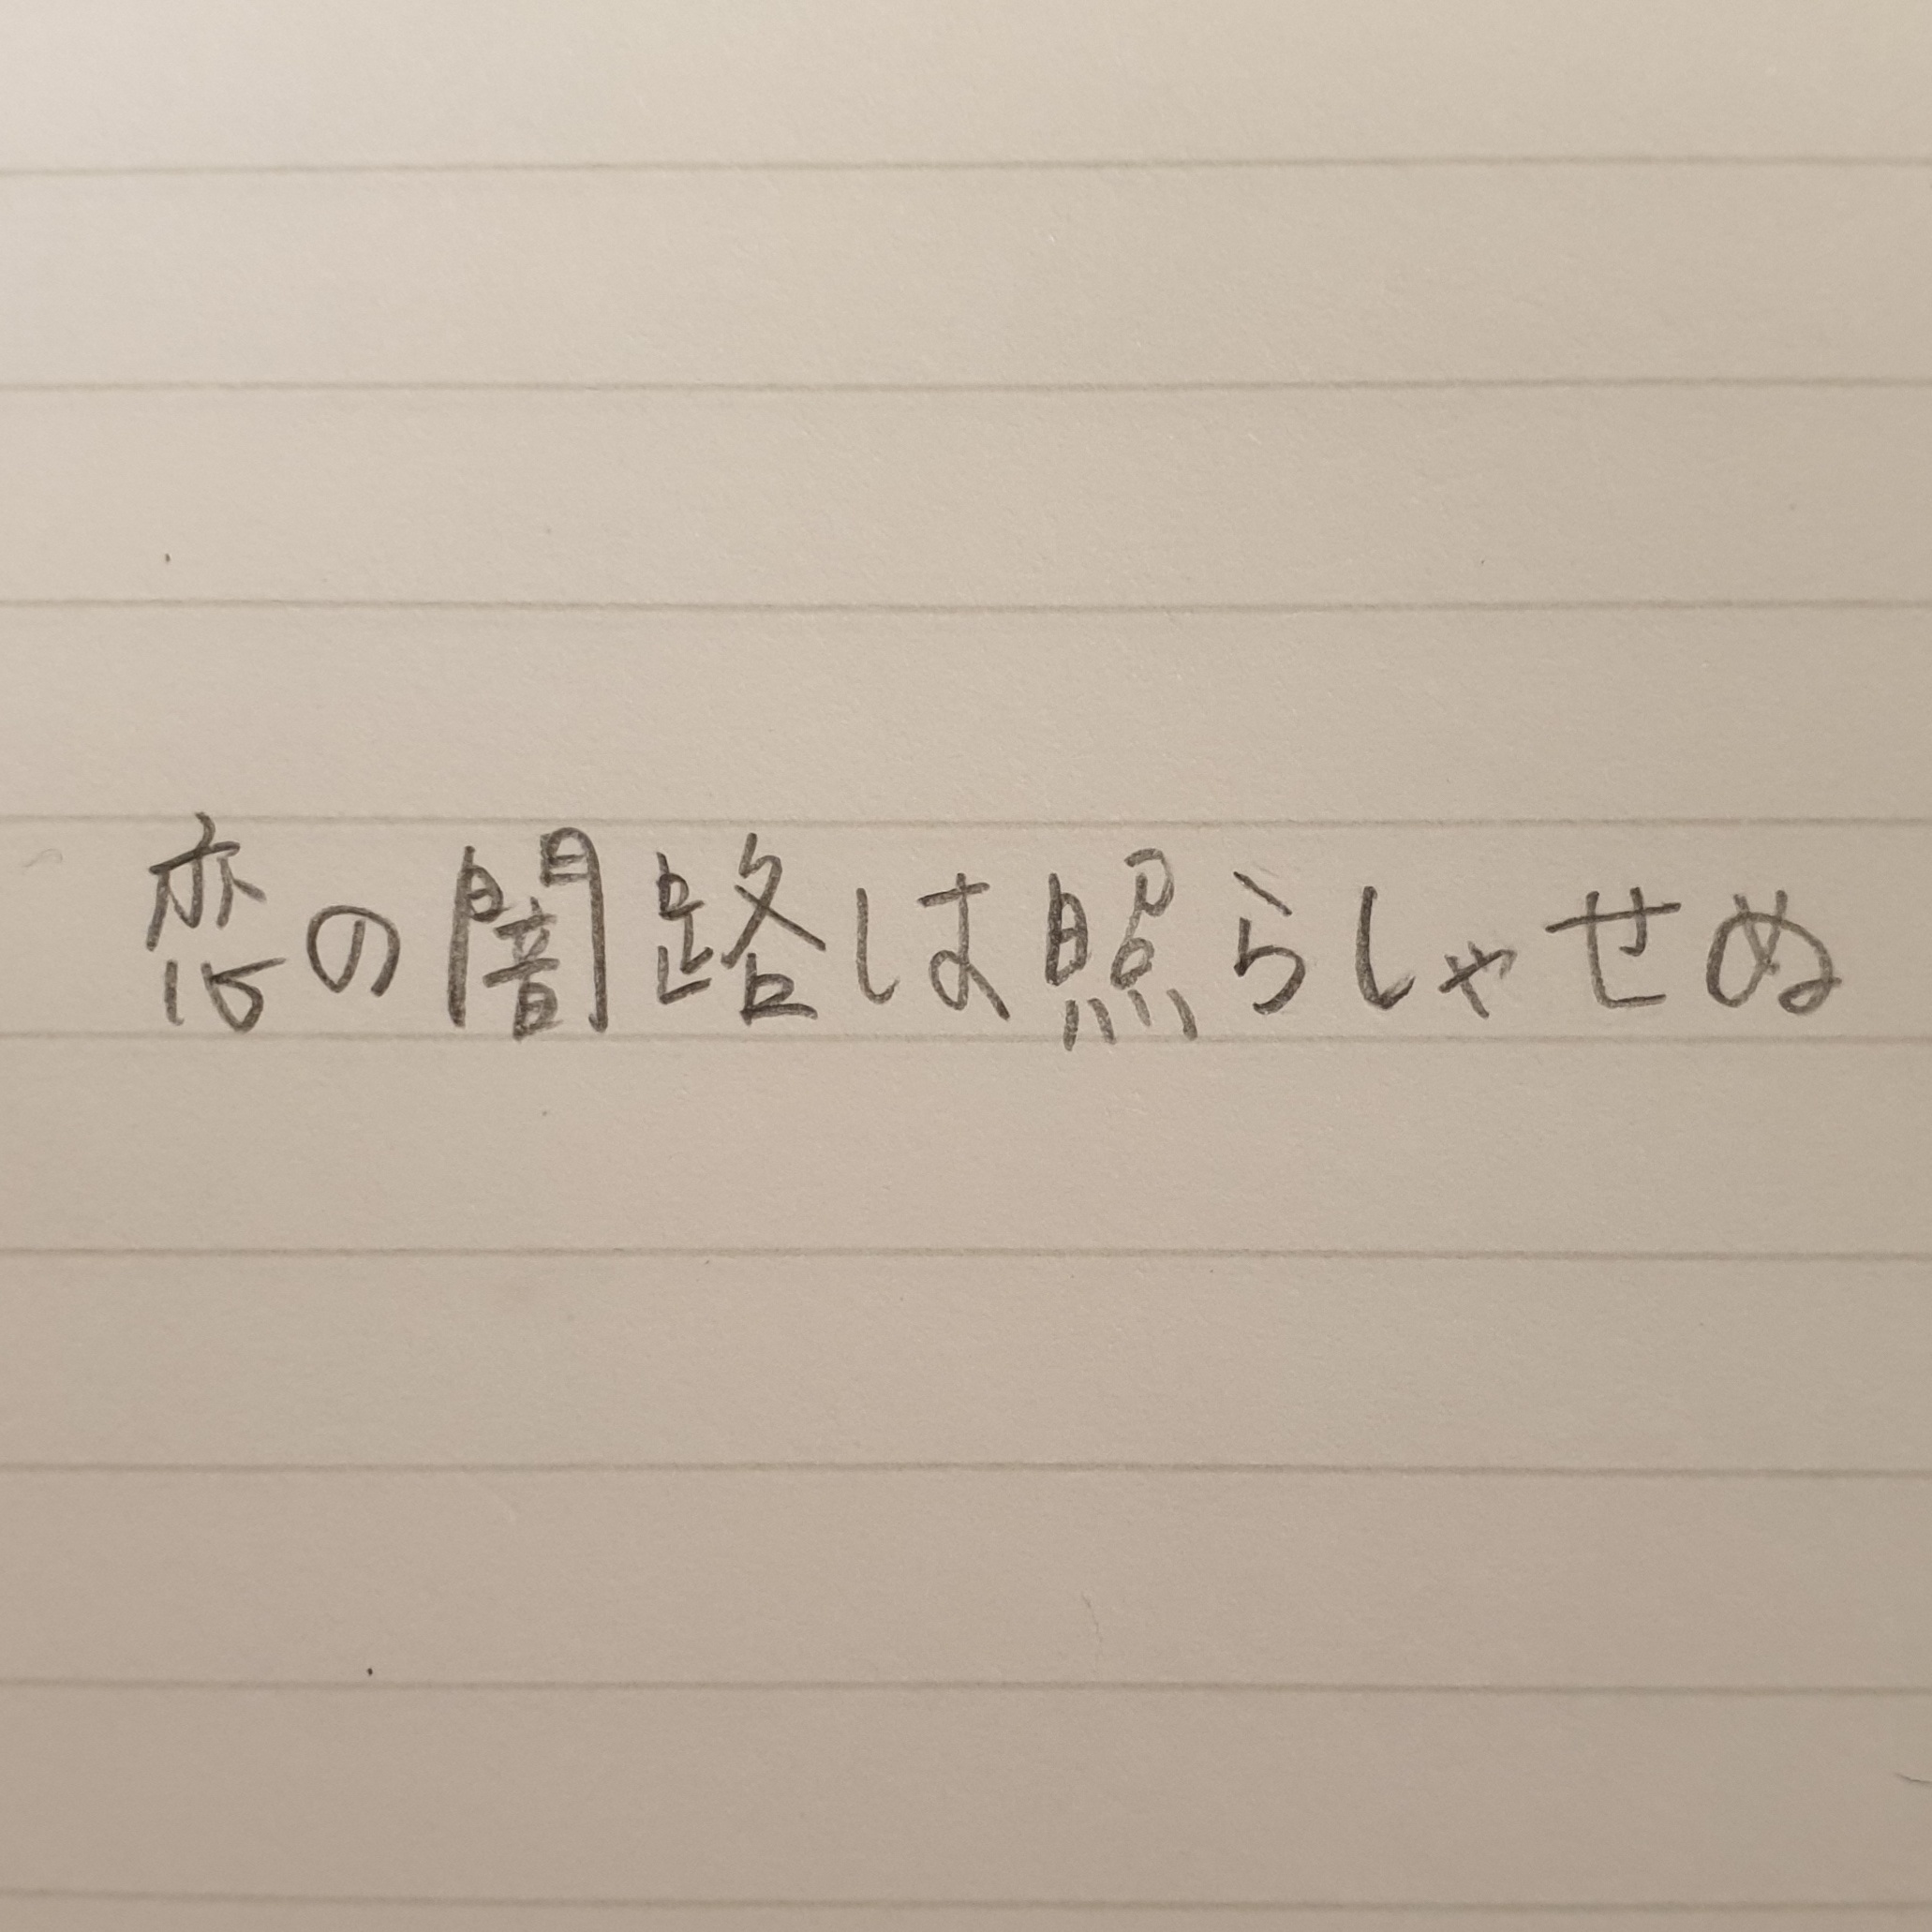 恋の闇路は照らしゃせぬ